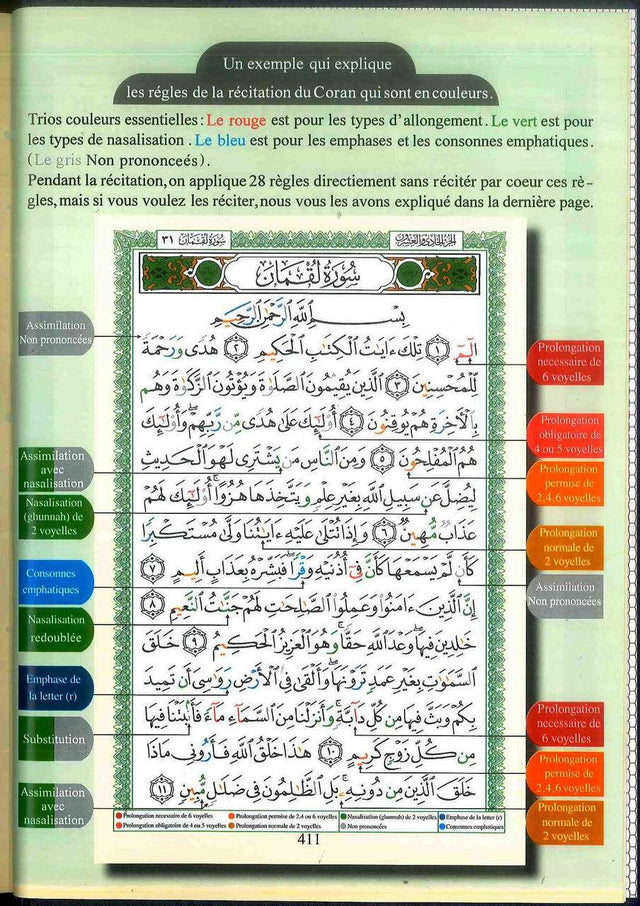 Un exemple qui explique
les régles de la récitation du Coran qui sont en couleurs.
Trios couleurs essentielles : Le rouge est pour les types d'allongement. Le vert est pour
les types de nasalisation . Le bleu est pour les emphases et les consonnes emphatiques.
(Le gris Non prononceés).
Pendant la récitation, on applique 28 règles directiement sans récitér par coeur ces rè-
gles, mais si vous voulez les réciter, nous vous les avons expliqué dans la dernière page.
سُورَةُ لُقْمَان ٣١
الجزء الحادي والعشرون
سُورَةُ لُقْمَانَ
بِسْمِ اللَّهِ الرَّحْمَٰنِ الرَّحِيمِ
الٓمٓ ١ تِلْكَ ءَايَٰتُ ٱلْكِتَٰبِ ٱلْحَكِيمِ ٢ هُدًى وَرَحْمَةً
لِّلْمُحْسِنِينَ ٣ ٱلَّذِينَ يُقِيمُونَ ٱلصَّلَوٰةَ وَيُؤْتُونَ ٱلزَّكَوٰةَ وَهُم
بِٱلْءَاخِرَةِ هُمْ يُوقِنُونَ ٤ أُوْلَٰٓئِكَ عَلَىٰ هُدًى مِّن رَّبِّهِمْ ۖ وَأُوْلَٰٓئِكَ
هُمُ ٱلْمُفْلِحُونَ ٥ وَمِنَ ٱلنَّاسِ مَن يَشْتَرِى لَهْوَ ٱلْحَدِيثِ
لِيُضِلَّ عَن سَبِيلِ ٱللَّهِ بِغَيْرِ عِلْمٍ وَيَتَّخِذَهَا هُزُوًا ۚ أُوْلَٰٓئِكَ لَهُمْ
عَذَابٌ مُّهِينٌ ٦ وَإِذَا تُتْلَىٰ عَلَيْهِ ءَايَٰتُنَا وَلَّىٰ مُسْتَكْبِرًا
كَأَن لَّمْ يَسْمَعْهَا كَأَنَّ فِىٓ أُذُنَيْهِ وَقْرًا ۖ فَبَشِّرْهُ بِعَذَابٍ أَلِيمٍ ٧
إِنَّ ٱلَّذِينَ ءَامَنُوا۟ وَعَمِلُوا۟ ٱلصَّٰلِحَٰتِ لَهُمْ جَنَّٰتُ ٱلنَّعِيمِ ٨
خَٰلِدِينَ فِيهَا ۖ وَعْدَ ٱللَّهِ حَقًّا ۚ وَهُوَ ٱلْعَزِيزُ ٱلْحَكِيمُ ٩ خَلَقَ
ٱلسَّمَٰوَٰتِ بِغَيْرِ عَمَدٍ تَرَوْنَهَا ۖ وَأَلْقَىٰ فِى ٱلْأَرْضِ رَوَٰسِىَ أَن تَمِيدَ
بِكُمْ وَبَثَّ فِيهَا مِن كُلِّ دَآبَّةٍ ۚ وَأَنزَلْنَا مِنَ ٱلسَّمَآءِ مَآءً فَأَنۢبَتْنَا فِيهَا
مِن كُلِّ زَوْجٍ كَرِيمٍ ١٠ هَٰذَا خَلْقُ ٱللَّهِ فَأَرُونِى مَاذَا
خَلَقَ ٱلَّذِينَ مِن دُونِهِۦ ۚ بَلِ ٱلظَّٰلِمُونَ فِى ضَلَٰلٍ مُّبِينٍ ١١
Assimilation
Non prononcées
Assimilation
avec
nasalisation
Nasalisation
(ghunnah) de
2 voyelles
Consonnes
emphatiques
Nasalisation
redoublée
Emphase de
la letter (r)
Substitution
Assimilation
avec
nasalisation
Prolongation
necessaire de
6 voyelles
Prolongation
obligatoire de
4 ou 5 voyelles
Prolongation
permise de
2,4,6 voyelles
Prolongation
normale de
2 voyelles
Assimilation
Non prononcées
Prolongation
necessaire de
6 voyelles
Prolongation
permise de
2,4,6 voyelles
Prolongation
normale de
2 voyelles
Prolongation necessaire de 6 voyelles Prolongation permise de 2,4 ou 6 voyelles Nasalisation (ghunnah) de 2 voyelles Emphase de la letter (r)
Prolongation obligatoire de 4 ou 5 voyelles Prolongation normale de 2 voyelles Non prononcées Consonnes emphatiques
411